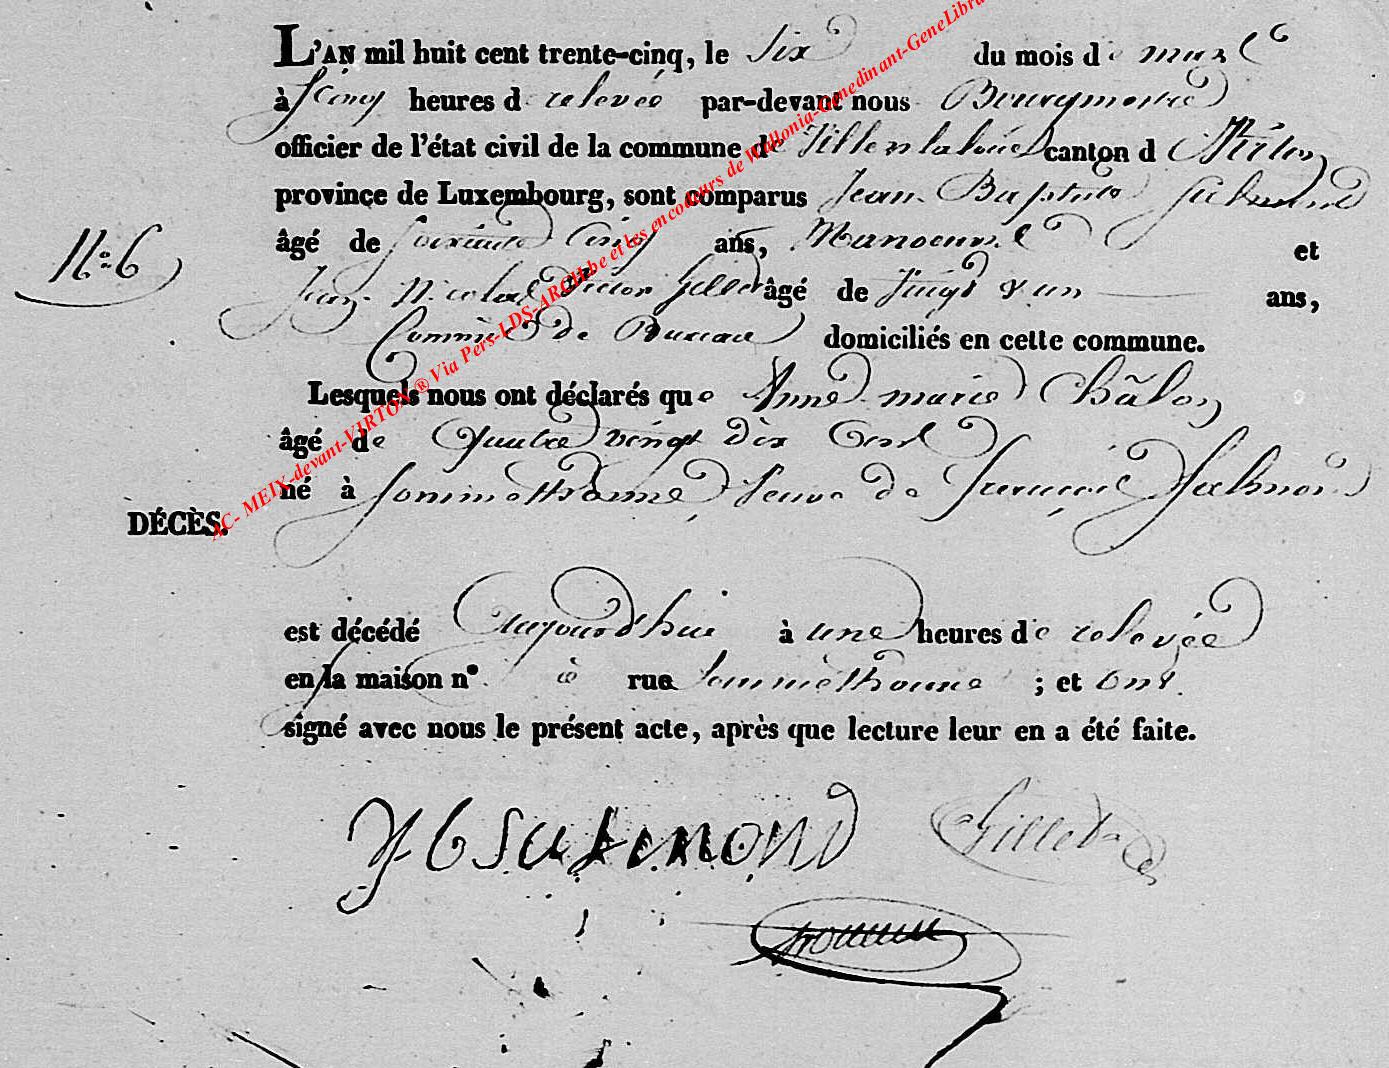 L'AN mil huit cent trente-cinq, le Six du mois de mars
à Cinq heures de relevée par-devant nous Bourgmestre
officier de l'état civil de la commune de Villerslaloue canton d Virton
province de Luxembourg, sont comparus Jean Baptiste Salmond
âgé de soixante Cinq ans, Manoeuvre et
N.o 6
Jean Nicolas Victor Gillet âgé de Vingt & un ans,
Commis de Bureau domiciliés en cette commune.
Lesquels nous ont déclarés que Anne marie Châlon
âgé de Quatre vingt dix
né à Sommethonne, Veuve de François Salmon
DÉCÈS.
est décédé Aujourd'hui à une heures de relevée
en la maison n° à rue Sommethonne ; et ont
signé avec nous le présent acte, après que lecture leur en a été faite.
JB Salmond Gillet
AC- MEIX-devant-VIRTON ® Via Pers-LDS-ARCH.be et les encodeurs de Wallonia-Genedinant-GeneLibra